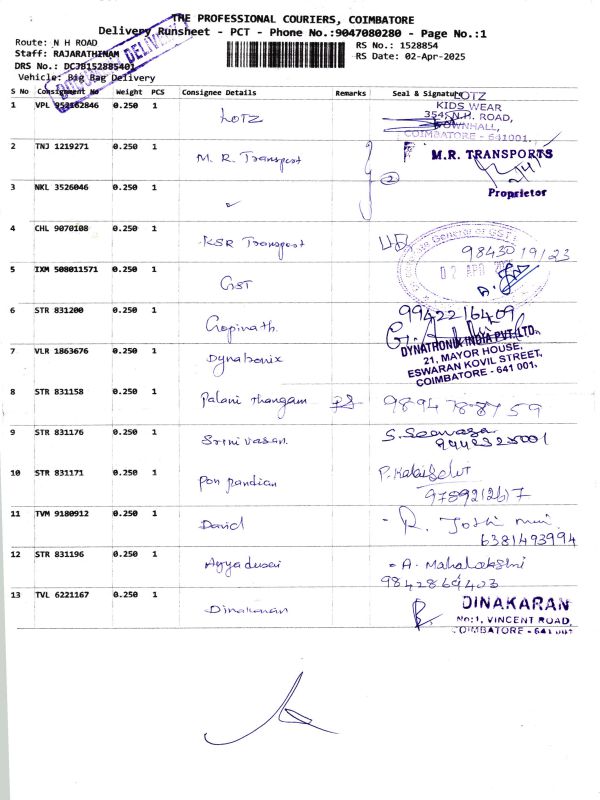 THE PROFESSIONAL COURIERS, COIMBATORE
Delivery Runsheet - PCT - Phone No.:9047080280 - Page No.:1
Route: N H ROAD
RS No.: 1528854
Staff: RAJARATHINAM
RS Date: 02-Apr-2025
DRS No.: DCJB152885401
Vehicle: Big Bag Delivery
DELIVERY
S No Consignment No Weight PCS Consignee Details Remarks Seal & Signature
1 VPL 952162846 0.250 1 LOTZ
LOTZ
KIDS WEAR
354, N.H. ROAD,
TOWNHALL,
COIMBATORE - 641001.
2 TNJ 1219271 0.250 1 M. R. Transport
M.R. TRANSPORTS
3 NKL 3526046 0.250 1 2
Proprietor
4 CHL 9070108 0.250 1 KSR Transport
9843019123
5 IXM 508011571 0.250 1 GST
02 APR
6 STR 831200 0.250 1 Gopinath 9942216409
7 VLR 1863676 0.250 1 Dynatronix
DYNATRONIX INDIA PVT. LTD.
21, MAYOR HOUSE,
ESWARAN KOVIL STREET,
COIMBATORE - 641 001.
8 STR 831158 0.250 1 Palani thangam 9894788759
9 STR 831176 0.250 1 Srinivasan
10 STR 831171 0.250 1 Pon pandian
9789212617
11 TVM 9180912 0.250 1 David
6381493994
12 STR 831196 0.250 1 Ayyadurai - A. Mahalakshmi
9842869403
13 TVL 6221167 0.250 1 Dinakaran
DINAKARAN
No:1, VINCENT ROAD,
COIMBATORE - 641 001